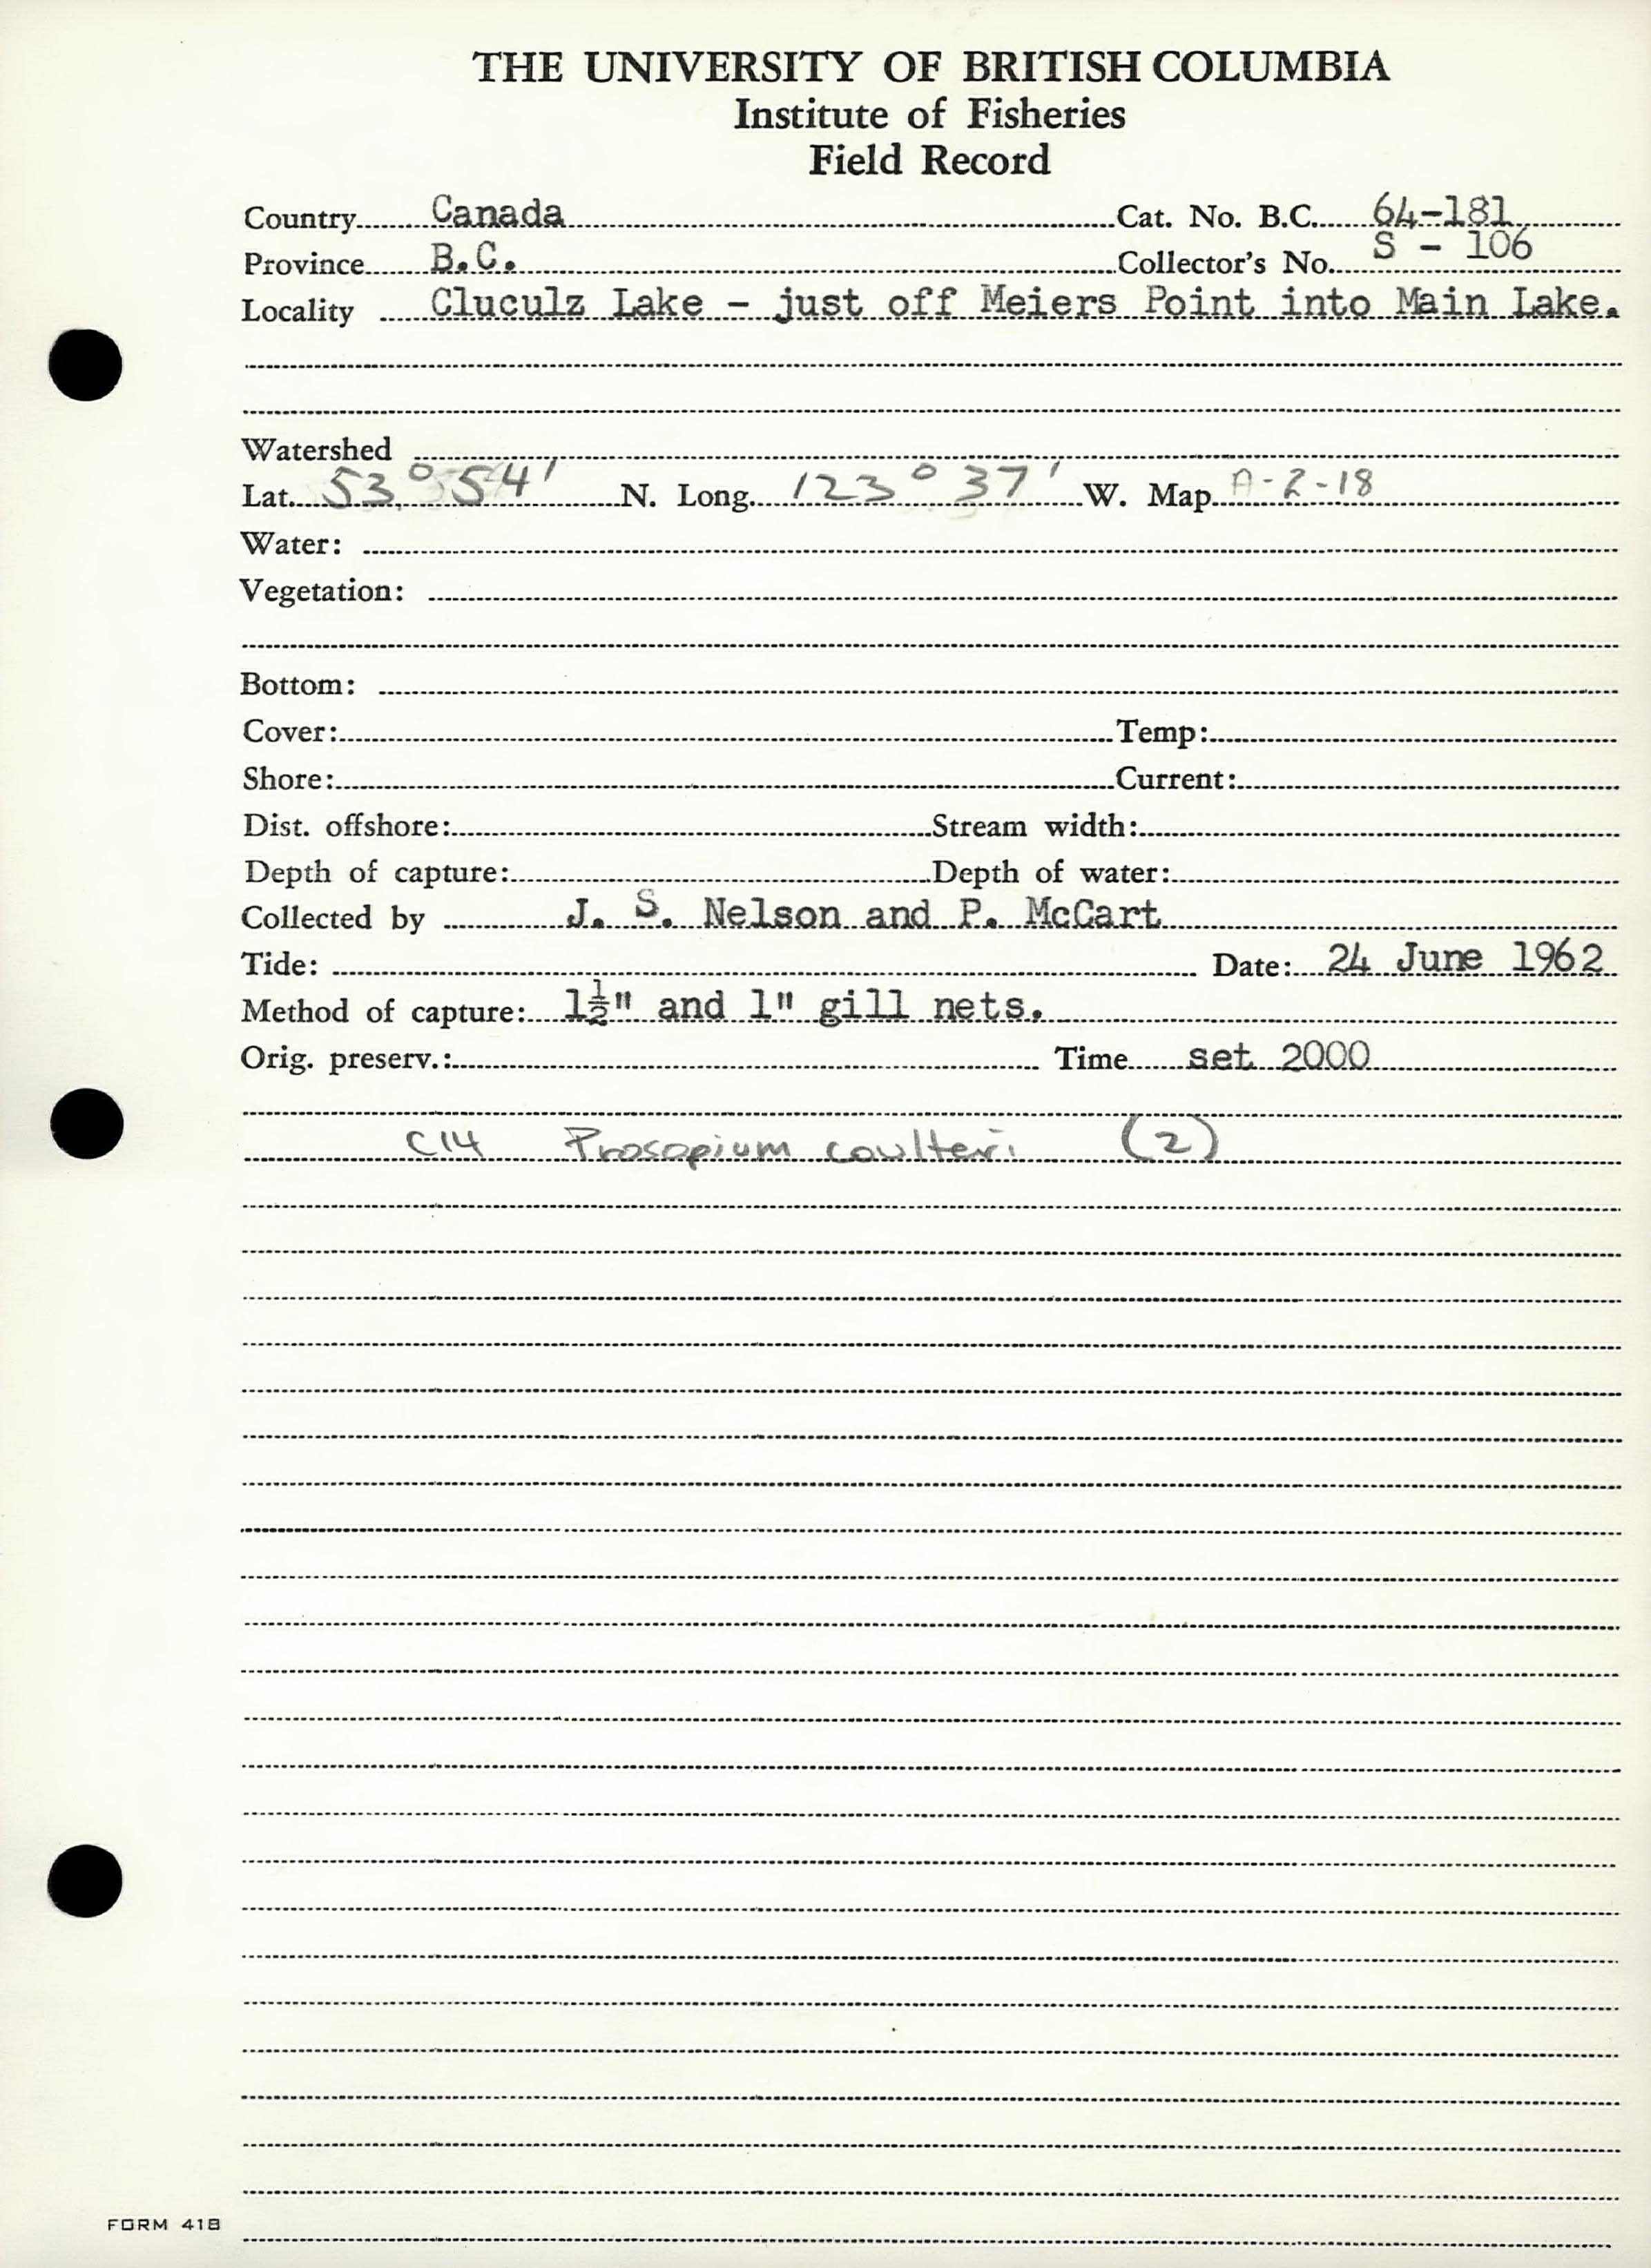 THE UNIVERSITY OF BRITISH COLUMBIA
Institute of Fisheries
Field Record
Country Canada Cat. No. B.C. 64-181
Province B.C. Collector's No. S - 106
Locality Cluculz Lake - just off Meiers Point into Main Lake.
Watershed
Lat. 53° 54' N. Long. 123° 37' W. Map A-2-18
Water:
Vegetation:
Bottom:
Cover: Temp:
Shore: Current:
Dist. offshore: Stream width:
Depth of capture: Depth of water:
Collected by J. S. Nelson and P. McCart
Tide: Date: 24 June 1962
Method of capture: 1½" and 1" gill nets.
Orig. preserv.: Time set 2000
C14 Prosopium coulteri (2)
FORM 41B